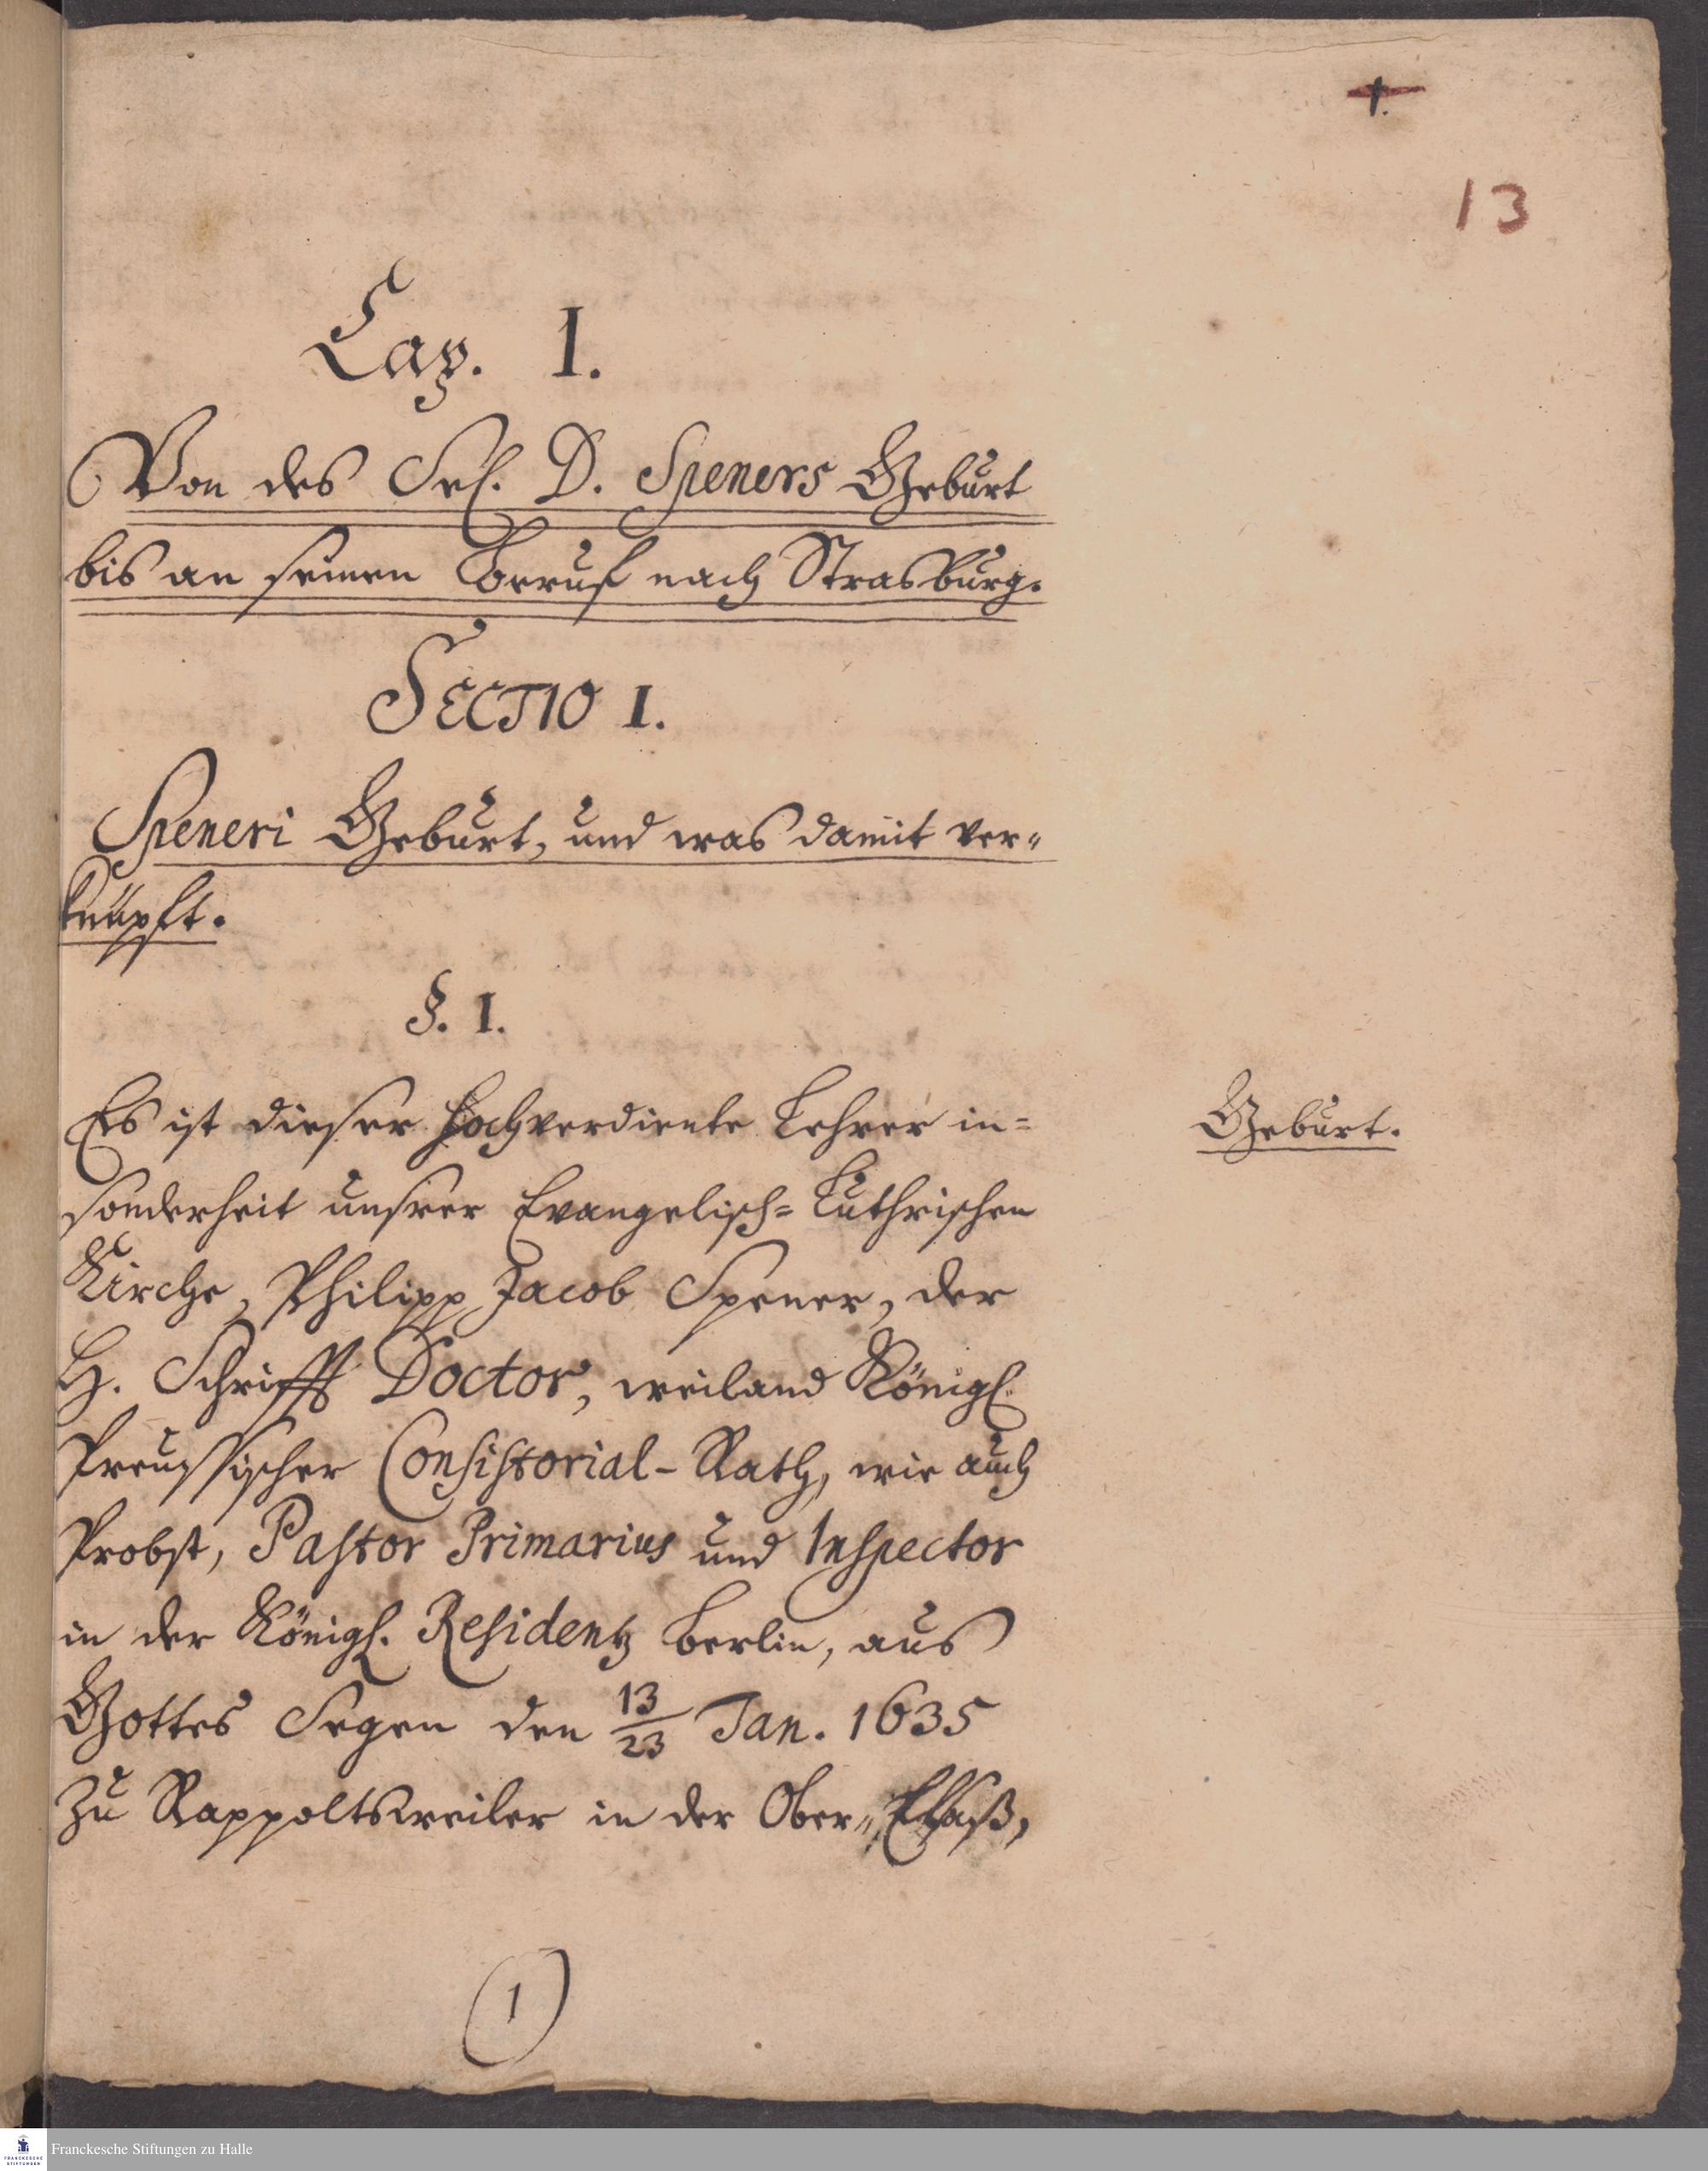 1.
13
Cap. I.
Von des Sel. D. Speners Geburt
bis an seinen Beruf nach Strasburg.
SECTIO I.
Speneri Geburt, und was damit ver=
knüpft.
§. I.
Es ist dieser hochverdiente Lehrer in=
Geburt.
sonderheit unsrer Evangelisch=Luthrischen
Kirche, Philipp Jacob Spener, der
H. Schrifft Doctor, weiland Königl.
Preussischer Consistorial-Rath, wie auch
Probst, Pastor Primarius und Inspector
in der Königl. Residentz Berlin, aus
Gottes Segen den 13/23 Jan. 1635
zu Rappoltsweiler in der Ober=Elsaß,
1
FRANCKESCHE STIFTUNGEN
Franckesche Stiftungen zu Halle